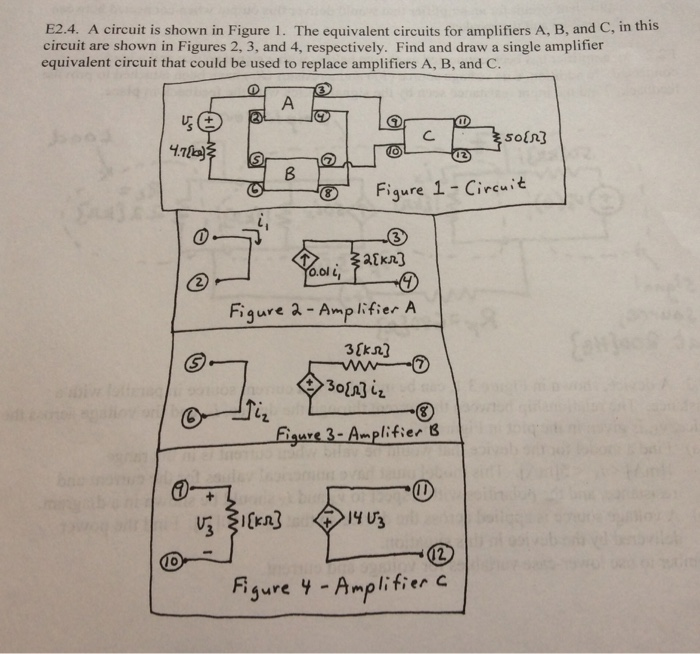 E2.4. A circuit is shown in Figure 1. The equivalent circuits for amplifiers A, B, and C, in this
circuit are shown in Figures 2, 3, and 4, respectively. Find and draw a single amplifier
equivalent circuit that could be used to replace amplifiers A, B, and C.
① A ③
② ④
vs + -
4.7[kΩ]
⑤ B ⑦
⑥ ⑧
⑨ C ⑪
⑩ ⑫
50[Ω]
Figure 1 - Circuit
① i₁ ③
0.01 i₁ 2[KΩ]
② ④
Figure 2 - Amplifier A
3[KΩ]
⑤ ⑦
+ - 30[Ω] i₂
⑥ i₂ ⑧
Figure 3 - Amplifier B
⑨ + ⑪
v₃ 1[KΩ] - + 14 v₃
⑩ - ⑫
Figure 4 - Amplifier C